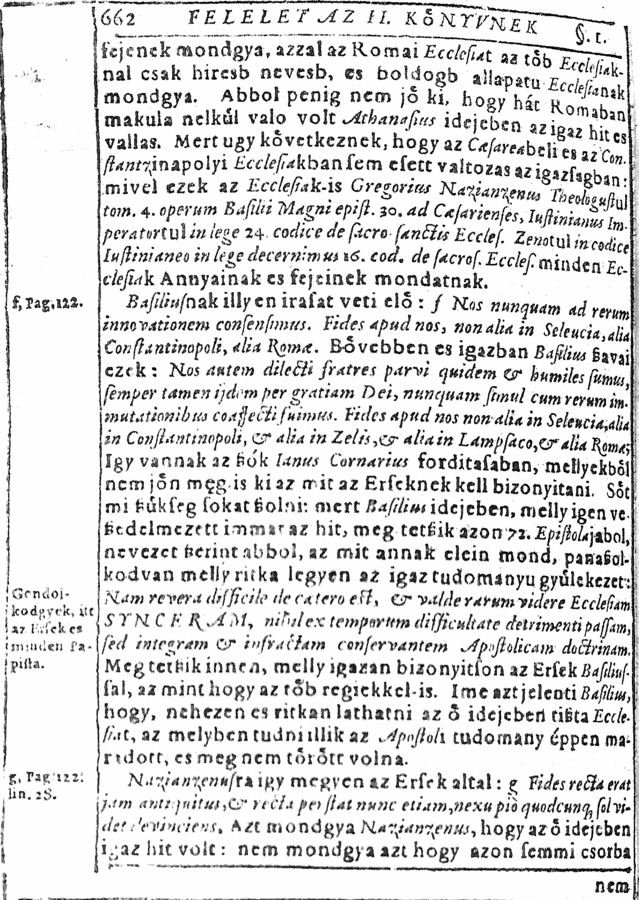 662 FELELET AZ II. KŐNYVNEK §. 1.
fejenek mondgya, azzal az Romai Ecclesiat az tőb Ecclesiak-
nal csak hiresb nevesb, es boldogb allapatu Ecclesianak
mondgya. Abbol penig nem jő ki, hogy hát Romaban
makula nelkűl valo volt Athanasius idejeben az igaz hit es
vallas. Mert ugy kővetkeznek, hogy az Cæsareabeli es az Con-
stantzinapolyi Ecclesiakban sem esett valtozas az igazsagban:
mivel ezek az Ecclesiak-is Gregorius Nazianzenus Theologustul
tom. 4. operum Basilii Magni epist. 30. ad Cæsarienses, Iustinianus Im-
peratortul in lege 24. codice de sacro sanctis Eccles. Zenotul in codice
Iustinianeo in lege decernimus 16. cod. de sacros. Eccles. minden Ec-
clesiak Annyainak es fejeinek mondatnak.
f, Pag. 122.
Basiliusnak illyen irasat veti elő: f Nos nunquam ad rerum
innovationem consensimus. Fides apud nos, non alia in Seleucia, alia
Constantinopoli, alia Romæ. Bővebben es igazban Basilius ßavai
ezek: Nos autem dilecti fratres parvi quidem & humiles sumus,
semper tamen ijdem per gratiam Dei, nunquam simul cum rerum im-
mutationibus coaffecti fuimus. Fides apud nos non alia in Seleucia, alia
in Constantinopoli, & alia in Zelis, & alia in Lampsaco, & alia Romæ;
Igy vannak az ßók Ianus Cornarius forditasaban, mellyekből
nem jőn meg-is ki az mit az Erseknek kell bizonyitani. Sőt
mi ßűkseg sokat ßolni: mert Basilius idejeben, melly igen ve-
ßedelmezett immar az hit, meg tetßik azon 72. Epistolajabol,
nevezet ßerint abbol, az mit annak elein mond, panaßol-
kodvan melly ritka legyen az igaz tudomanyu gyűlekezet:
Gondol-
kodgyek, itt
az Ersek es
minden Pa-
pista.
Nam revera difficile de cætero est, & valde rarum videre Ecclesiam
SYNCERAM, nihil ex temporum difficultate detrimenti passam,
sed integram & infractam conservantem Apostolicam doctrinam.
Meg tetßik innen, melly igazan bizonyitson az Ersek Basilius-
sal, az mint hogy az tőb regiekkel-is. Ime azt jelenti Basilius,
hogy, nehezen es ritkan lathatni az ő idejeben tißta Eccle-
siat, az melyben tudni illik az Apostoli tudomany éppen ma-
radott, es meg nem tőrőtt volna.
g, Pag. 122.
lin. 28.
Nazianzenusra igy megyen az Ersek altal: g Fides recta erat
jam antiquitus, & recta perstat nunc etiam, nexu pio quodcunq, sol vi-
det devinciens. Azt mondgya Nazianzenus, hogy az ő idejeben
igaz hit volt: nem mondgya azt hogy azon semmi csorba
nem